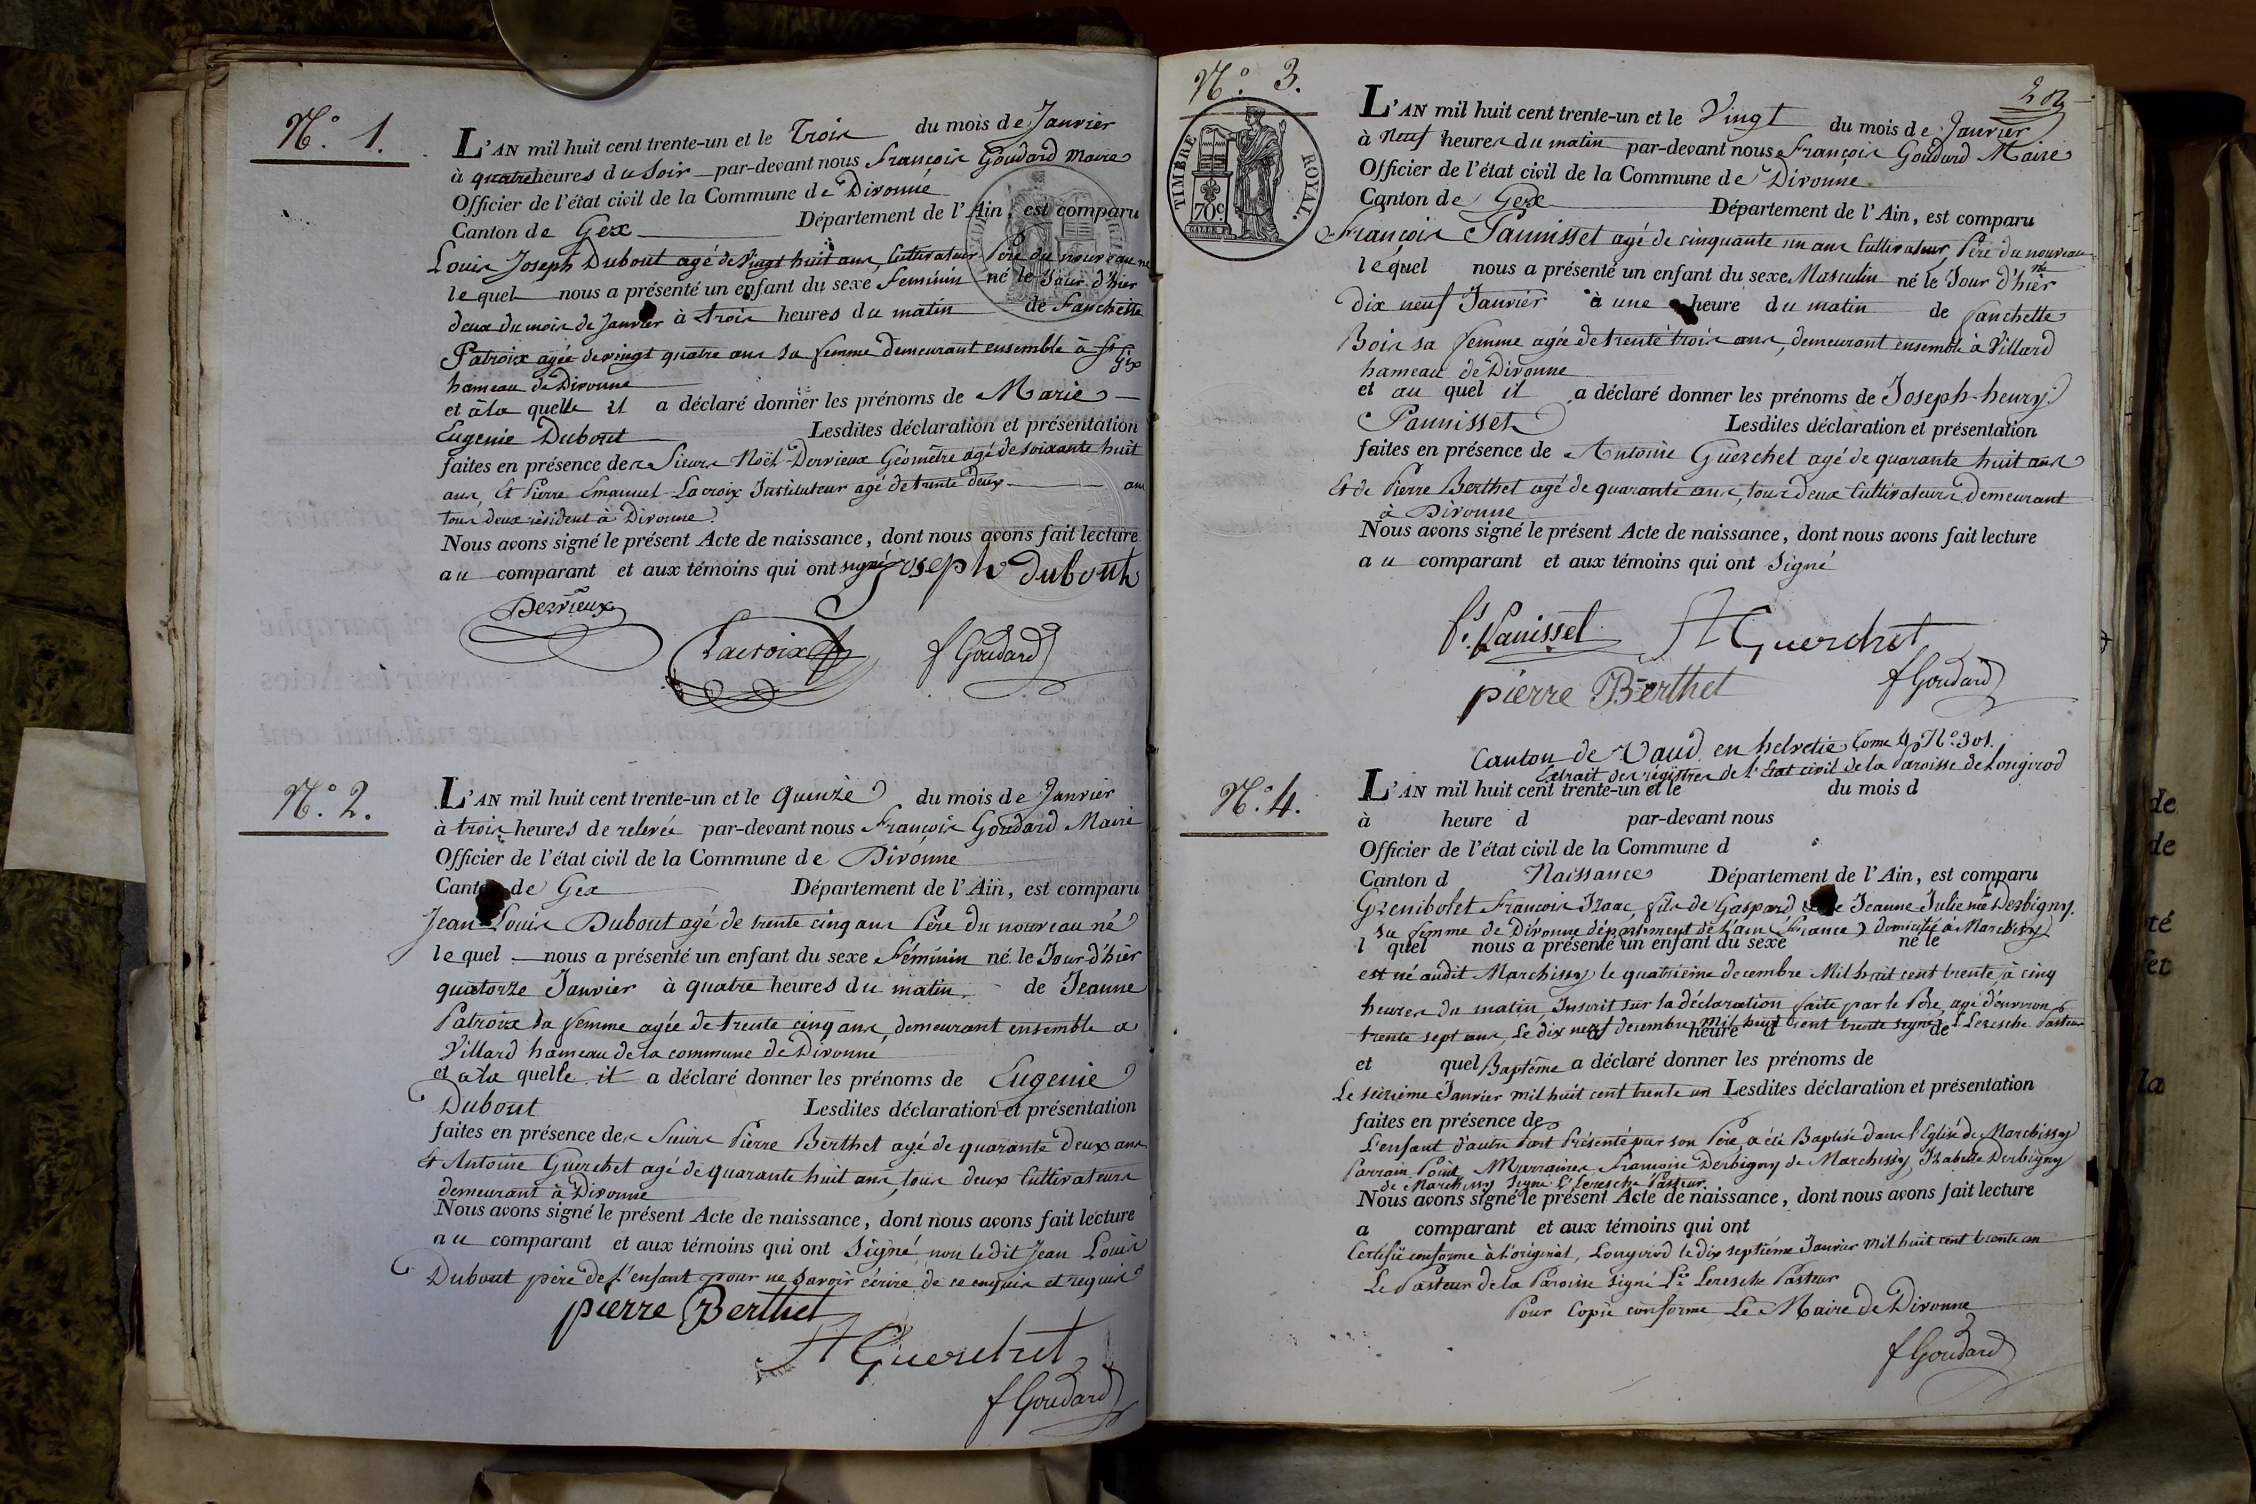 N.° 1.
L'AN mil huit cent trente-un et le Trois du mois de Janvier
à quatre heures du Soir par-devant nous François Goudard Maire
Officier de l'état civil de la Commune de Divonne
Canton de Gex Département de l'Ain, est comparu
Louis Joseph Dubout agé de vingt huit ans, Cultivateur Père du nouveau né
lequel nous a présenté un enfant du sexe Féminin né le Jour d'hier
deux du mois de Janvier à trois heures du matin de Fanchette
Patroix agée de vingt quatre ans sa femme demeurant ensemble à St Gix
hameau de Divonne
et à la quelle il a déclaré donner les prénoms de Marie
Eugenie Dubout Lesdites déclaration et présentation
faites en présence des Sieurs Noël Dervieux Géomètre agé de soixante huit
ans, Et Pierre Emanuel Lacroix Instituteur agé de trente deux ans
tous deux résident à Divonne.
Nous avons signé le présent Acte de naissance, dont nous avons fait lecture
au comparant et aux témoins qui ont signé Joseph dubout
Dervieux
Lacroix
f Goudard
N.° 2.
L'AN mil huit cent trente-un et le quinze du mois de Janvier
à trois heures de relevée par-devant nous François Goudard Maire
Officier de l'état civil de la Commune de Divonne
Canton de Gex Département de l'Ain, est comparu
Jean Louis Dubout agé de trente cinq ans Père du nouveau né
lequel nous a présenté un enfant du sexe Féminin né le Jour d'hier
quatorze Janvier à quatre heures du matin de Jeanne
Patroix sa femme agée de trente cinq ans, demeurant ensemble a
Villard hameau de la commune de Divonne
et a la quelle il a déclaré donner les prénoms de Eugenie
Dubout Lesdites déclaration et présentation
faites en présence des Sieurs Pierre Berthet agé de quarante deux ans
Et Antoine Guerchet agé de quarante huit ans, tous deux Cultivateurs
demeurant à Divonne
Nous avons signé le présent Acte de naissance, dont nous avons fait lecture
au comparant et aux témoins qui ont Signé non ledit Jean Louis
Dubout père de l'enfant pour ne savoir écrire de ce enquis et requis
pierre Berthet
A Guerchet
f Goudard
N.° 3.
TIMBRE ROYAL.
70c.
L'AN mil huit cent trente-un et le Vingt du mois de Janvier
à Neuf heures du matin par-devant nous François Goudard Maire
Officier de l'état civil de la Commune de Divonne
Canton de Gex Département de l'Ain, est comparu
François Paunisset agé de cinquante un ans Cultivateur, Père du nouveau né
lequel nous a présenté un enfant du sexe Masculin né le Jour d'hier
dix neuf Janvier à une heure du matin de fanchette
Bois sa femme agée de trente trois ans, demeurant ensemble à Villard
hameau de Divonne
et au quel il a déclaré donner les prénoms de Joseph-henry
Paunisset Lesdites déclaration et présentation
faites en présence de Antoine Guerchet agé de quarante huit ans
Et de Pierre Berthet agé de quarante ans, tous deux Cultivateurs demeurant
à Divonne
Nous avons signé le présent Acte de naissance, dont nous avons fait lecture
au comparant et aux témoins qui ont Signé
A Guerchet
pierre Berthet
f Goudard
Canton de Vaud en helvetie tome 4 N.° 301.
Extrait des régistres de l'Etat civil de la Paroisse de Longirod
N.° 4.
L'AN mil huit cent trente-un et le du mois d
à heure d par-devant nous
Officier de l'état civil de la Commune d
Canton d Naissance Département de l'Ain, est comparu
Grenibolet François Izaac, fils de Gaspard de Jeanne Julie née Derbigny,
sa femme de Divonne département de l'ain (france) domicilié à Marchissy
l quel nous a présenté un enfant du sexe né le
est né audit Marchissy le quatrième decembre Mil huit cent trente, à cinq
heures du matin, Inscrit sur la déclaration faite par le Père, agé d'environ
trente sept ans, Le dix neuf decembre Mil huit cent trente signé L Leresche Pasteur
heure d de
et quel Baptême a déclaré donner les prénoms de
Le seizième Janvier mil huit cent trente un Lesdites déclaration et présentation
faites en présence de
L'enfant d'autre Part Présenté par son Père, a été Baptisé dans l'Eglise de Marchissy
Parrain Point, Marraines Françoise Derbigny de Marchissy, Izabelle Derbigny
de Marchissy Signé L.s Leresche Pasteur.
Nous avons signé le présent Acte de naissance, dont nous avons fait lecture
a comparant et aux témoins qui ont
Certifié conforme à l'original, Longirod le dix septième Janvier Mil huit cent trente un
Le Pasteur de la Paroisse signé L.s Leresche Pasteur
Pour Copie conforme Le Maire de Divonne
f Goudard